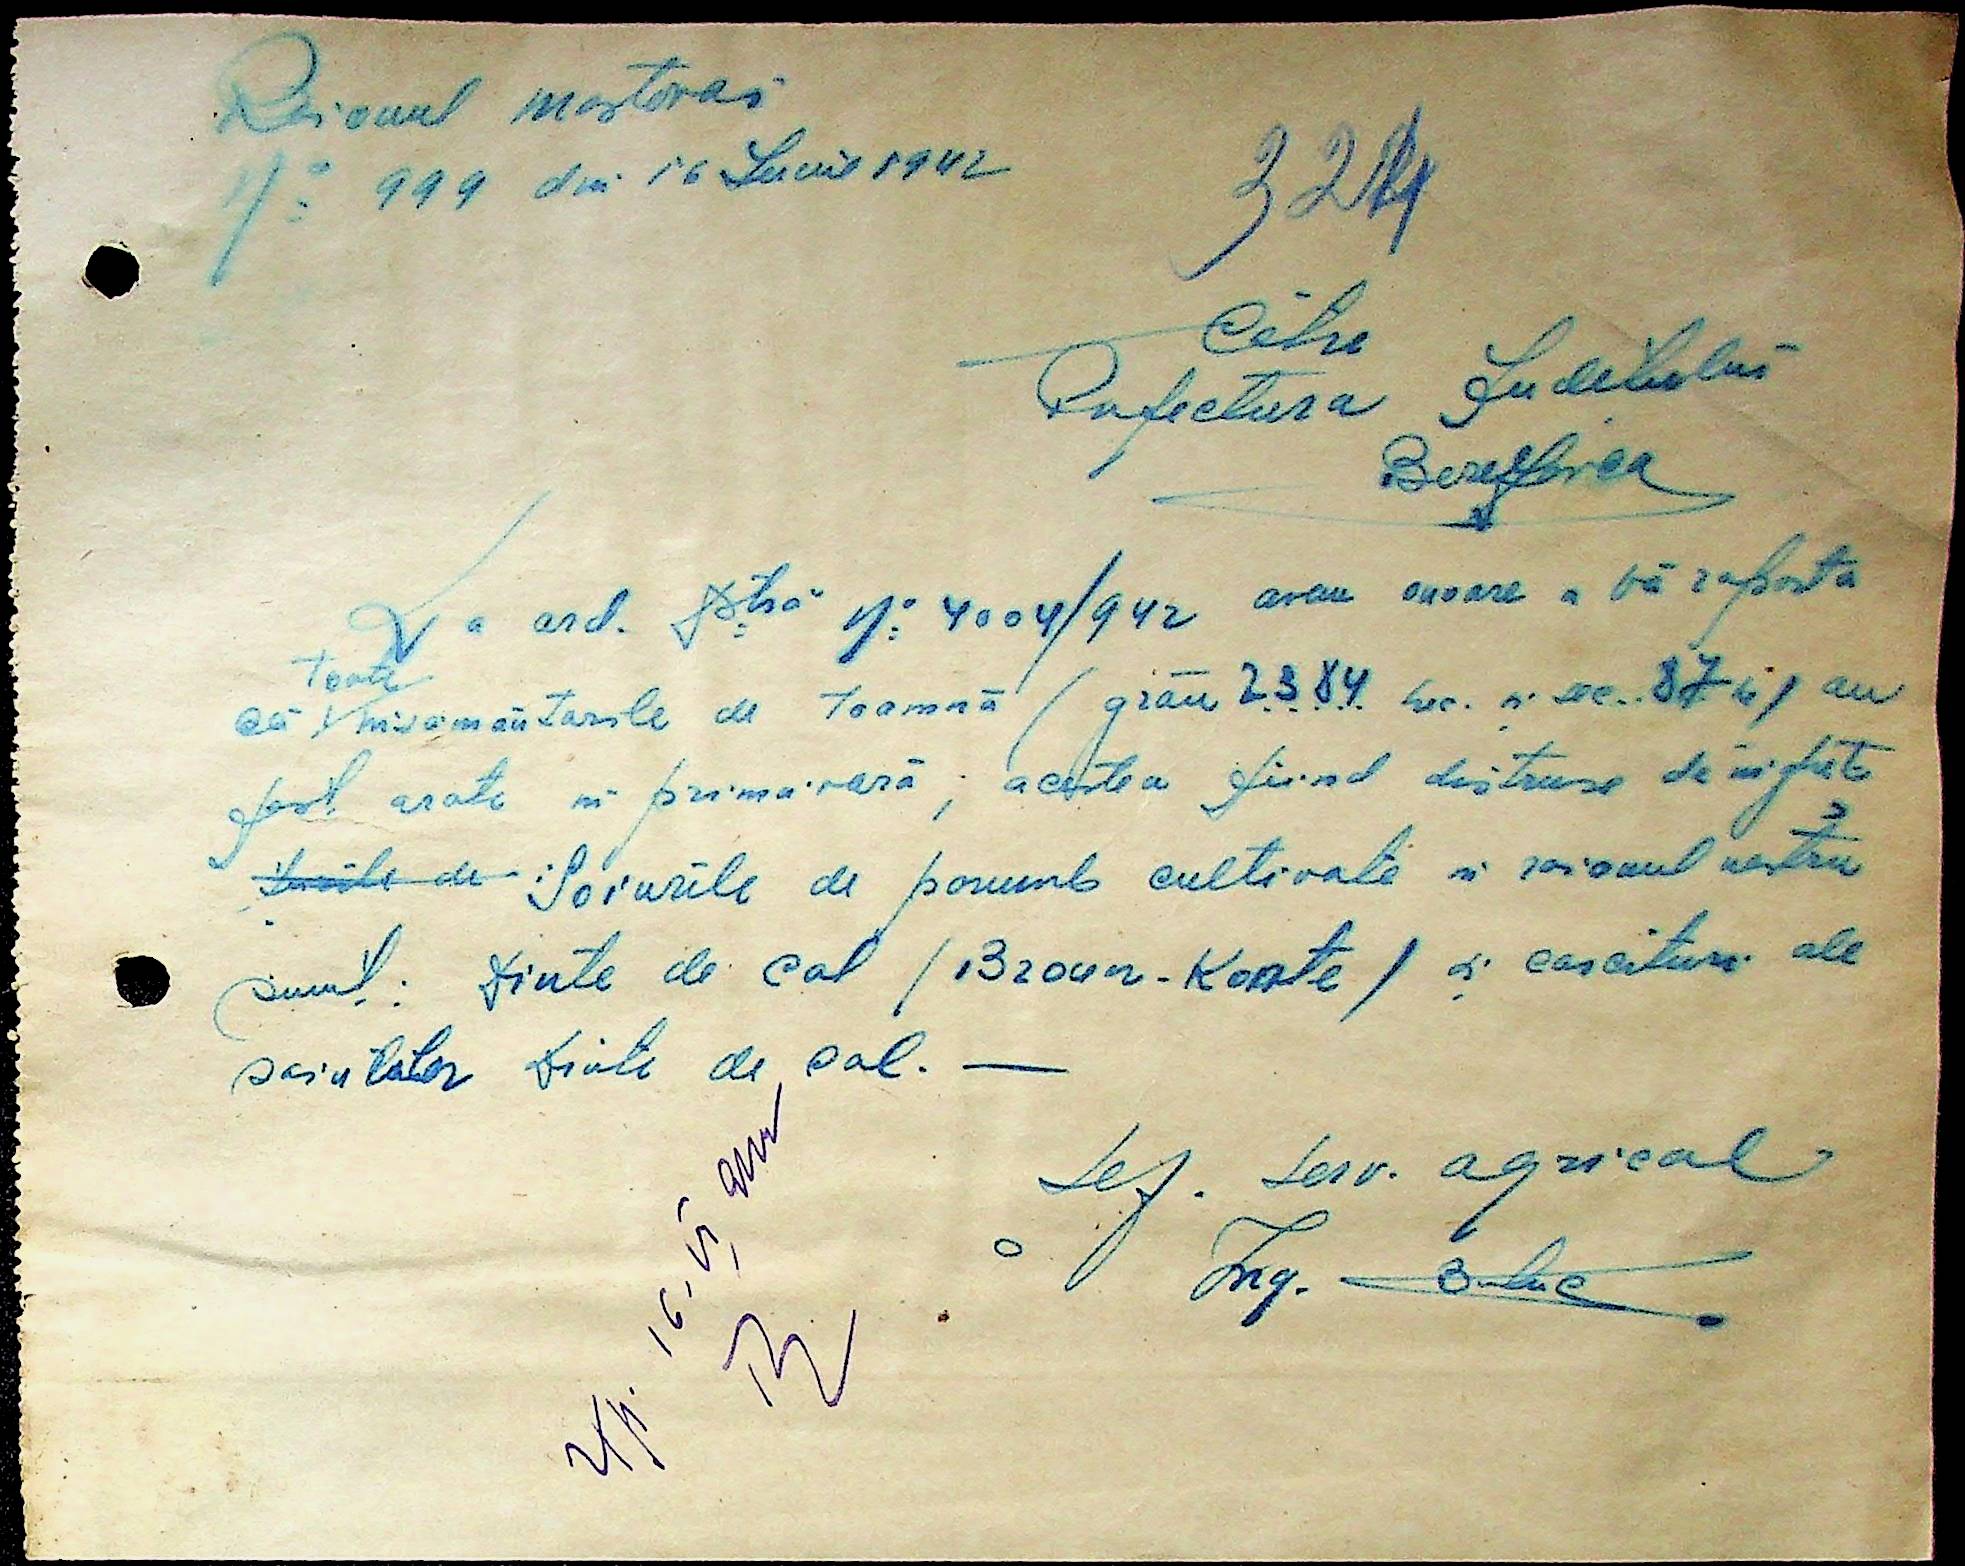 Raionul Mostovoi
Nº 999 din 16 Iunie 1942
Către
Prefectura Judetului
Berezovca
La ord. Dtră Nº 4004/942 avem onoare a vă raporta
toate
că însămânțările de toamnă (grâu 2384 hec. și sec. 87 h) au
fost arate în primăvară; acestea fiind distruse de înghețe
Soiurile de porumb cultivate în raionul nostru
sunt: Dinte de cal / Brown-Konte / și corcituri ale
soiurilor Dinte de cal. —
Șef. Serv. agricol
Ing.
16. VI